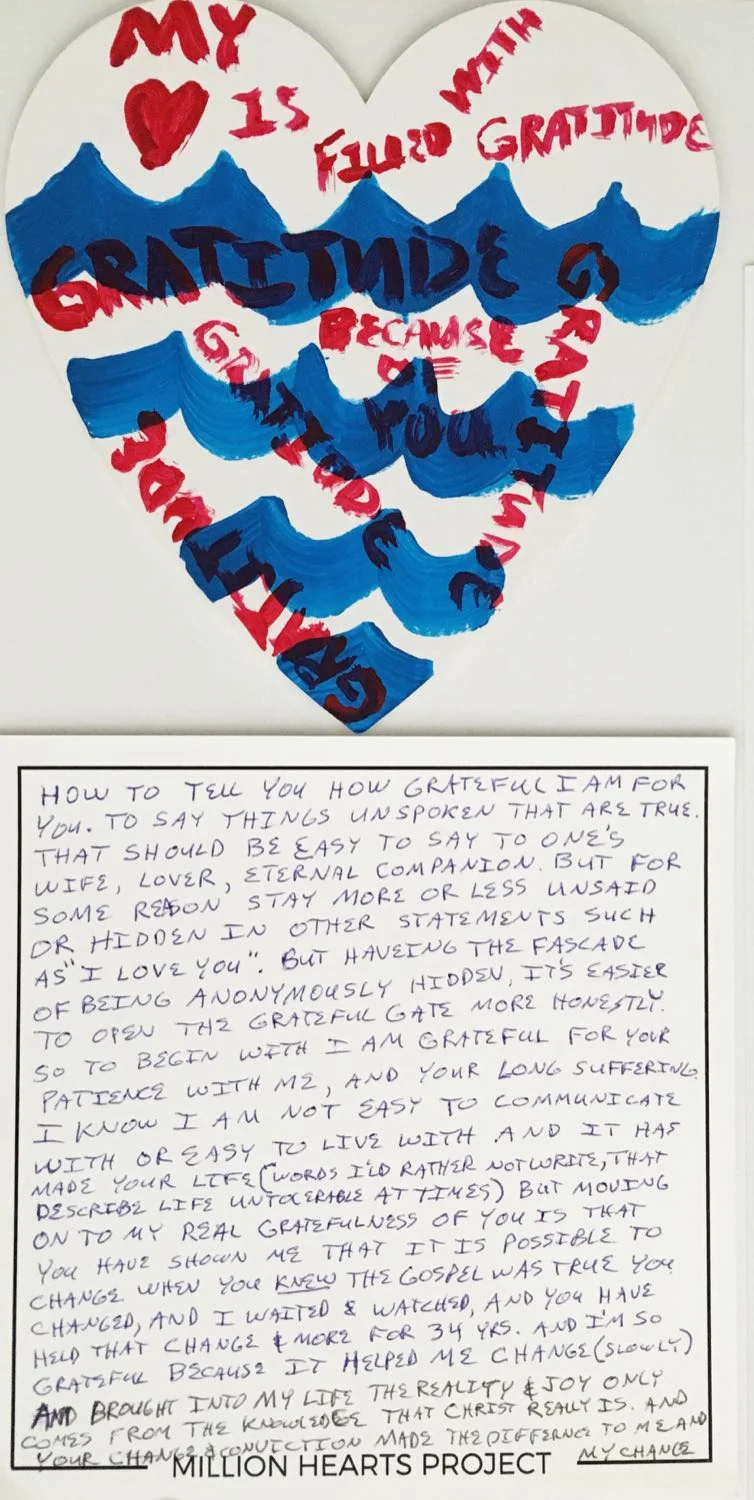 MY
WITH
♥ IS
FILLED GRATITUDE
GRATITUDE
GRATITUDE
BECAUSE
GRATITUDE
OF
YOU
GRATITUDE
HOW TO TELL YOU HOW GRATEFUL I AM FOR
YOU. TO SAY THINGS UNSPOKEN THAT ARE TRUE.
THAT SHOULD BE EASY TO SAY TO ONE'S
WIFE, LOVER, ETERNAL COMPANION. BUT FOR
SOME REASON STAY MORE OR LESS UNSAID
OR HIDDEN IN OTHER STATEMENTS SUCH
AS "I LOVE YOU". BUT HAVEING THE FASCADE
OF BEING ANONYMOUSLY HIDDEN, IT'S EASIER
TO OPEN THE GRATEFUL GATE MORE HONESTLY.
SO TO BEGIN WITH I AM GRATEFUL FOR YOUR
PATIENCE WITH ME, AND YOUR LONG SUFFERING.
I KNOW I AM NOT EASY TO COMMUNICATE
WITH OR EASY TO LIVE WITH AND IT HAS
MADE YOUR LIFE (WORDS I'LD RATHER NOT WRITE, THAT
DESCRIBE LIFE UNTOLERABLE AT TIMES) BUT MOVING
ON TO MY REAL GRATEFULNESS OF YOU IS THAT
YOU HAVE SHOWN ME THAT IT IS POSSIBLE TO
CHANGE WHEN YOU KNEW THE GOSPEL WAS TRUE YOU
CHANGED, AND I WAITED & WATCHED, AND YOU HAVE
HELD THAT CHANGE & MORE FOR 34 YRS. AND I'M SO
GRATEFUL BECAUSE IT HELPED ME CHANGE (SLOWLY)
AND BROUGHT INTO MY LIFE THE REALITY & JOY ONLY
COMES FROM THE KNOWLEDGE THAT CHRIST REALLY IS. AND
YOUR CHANGE & CONVICTION MADE THE DIFFERNCE TO ME AND
MY CHANGE
MILLION HEARTS PROJECT